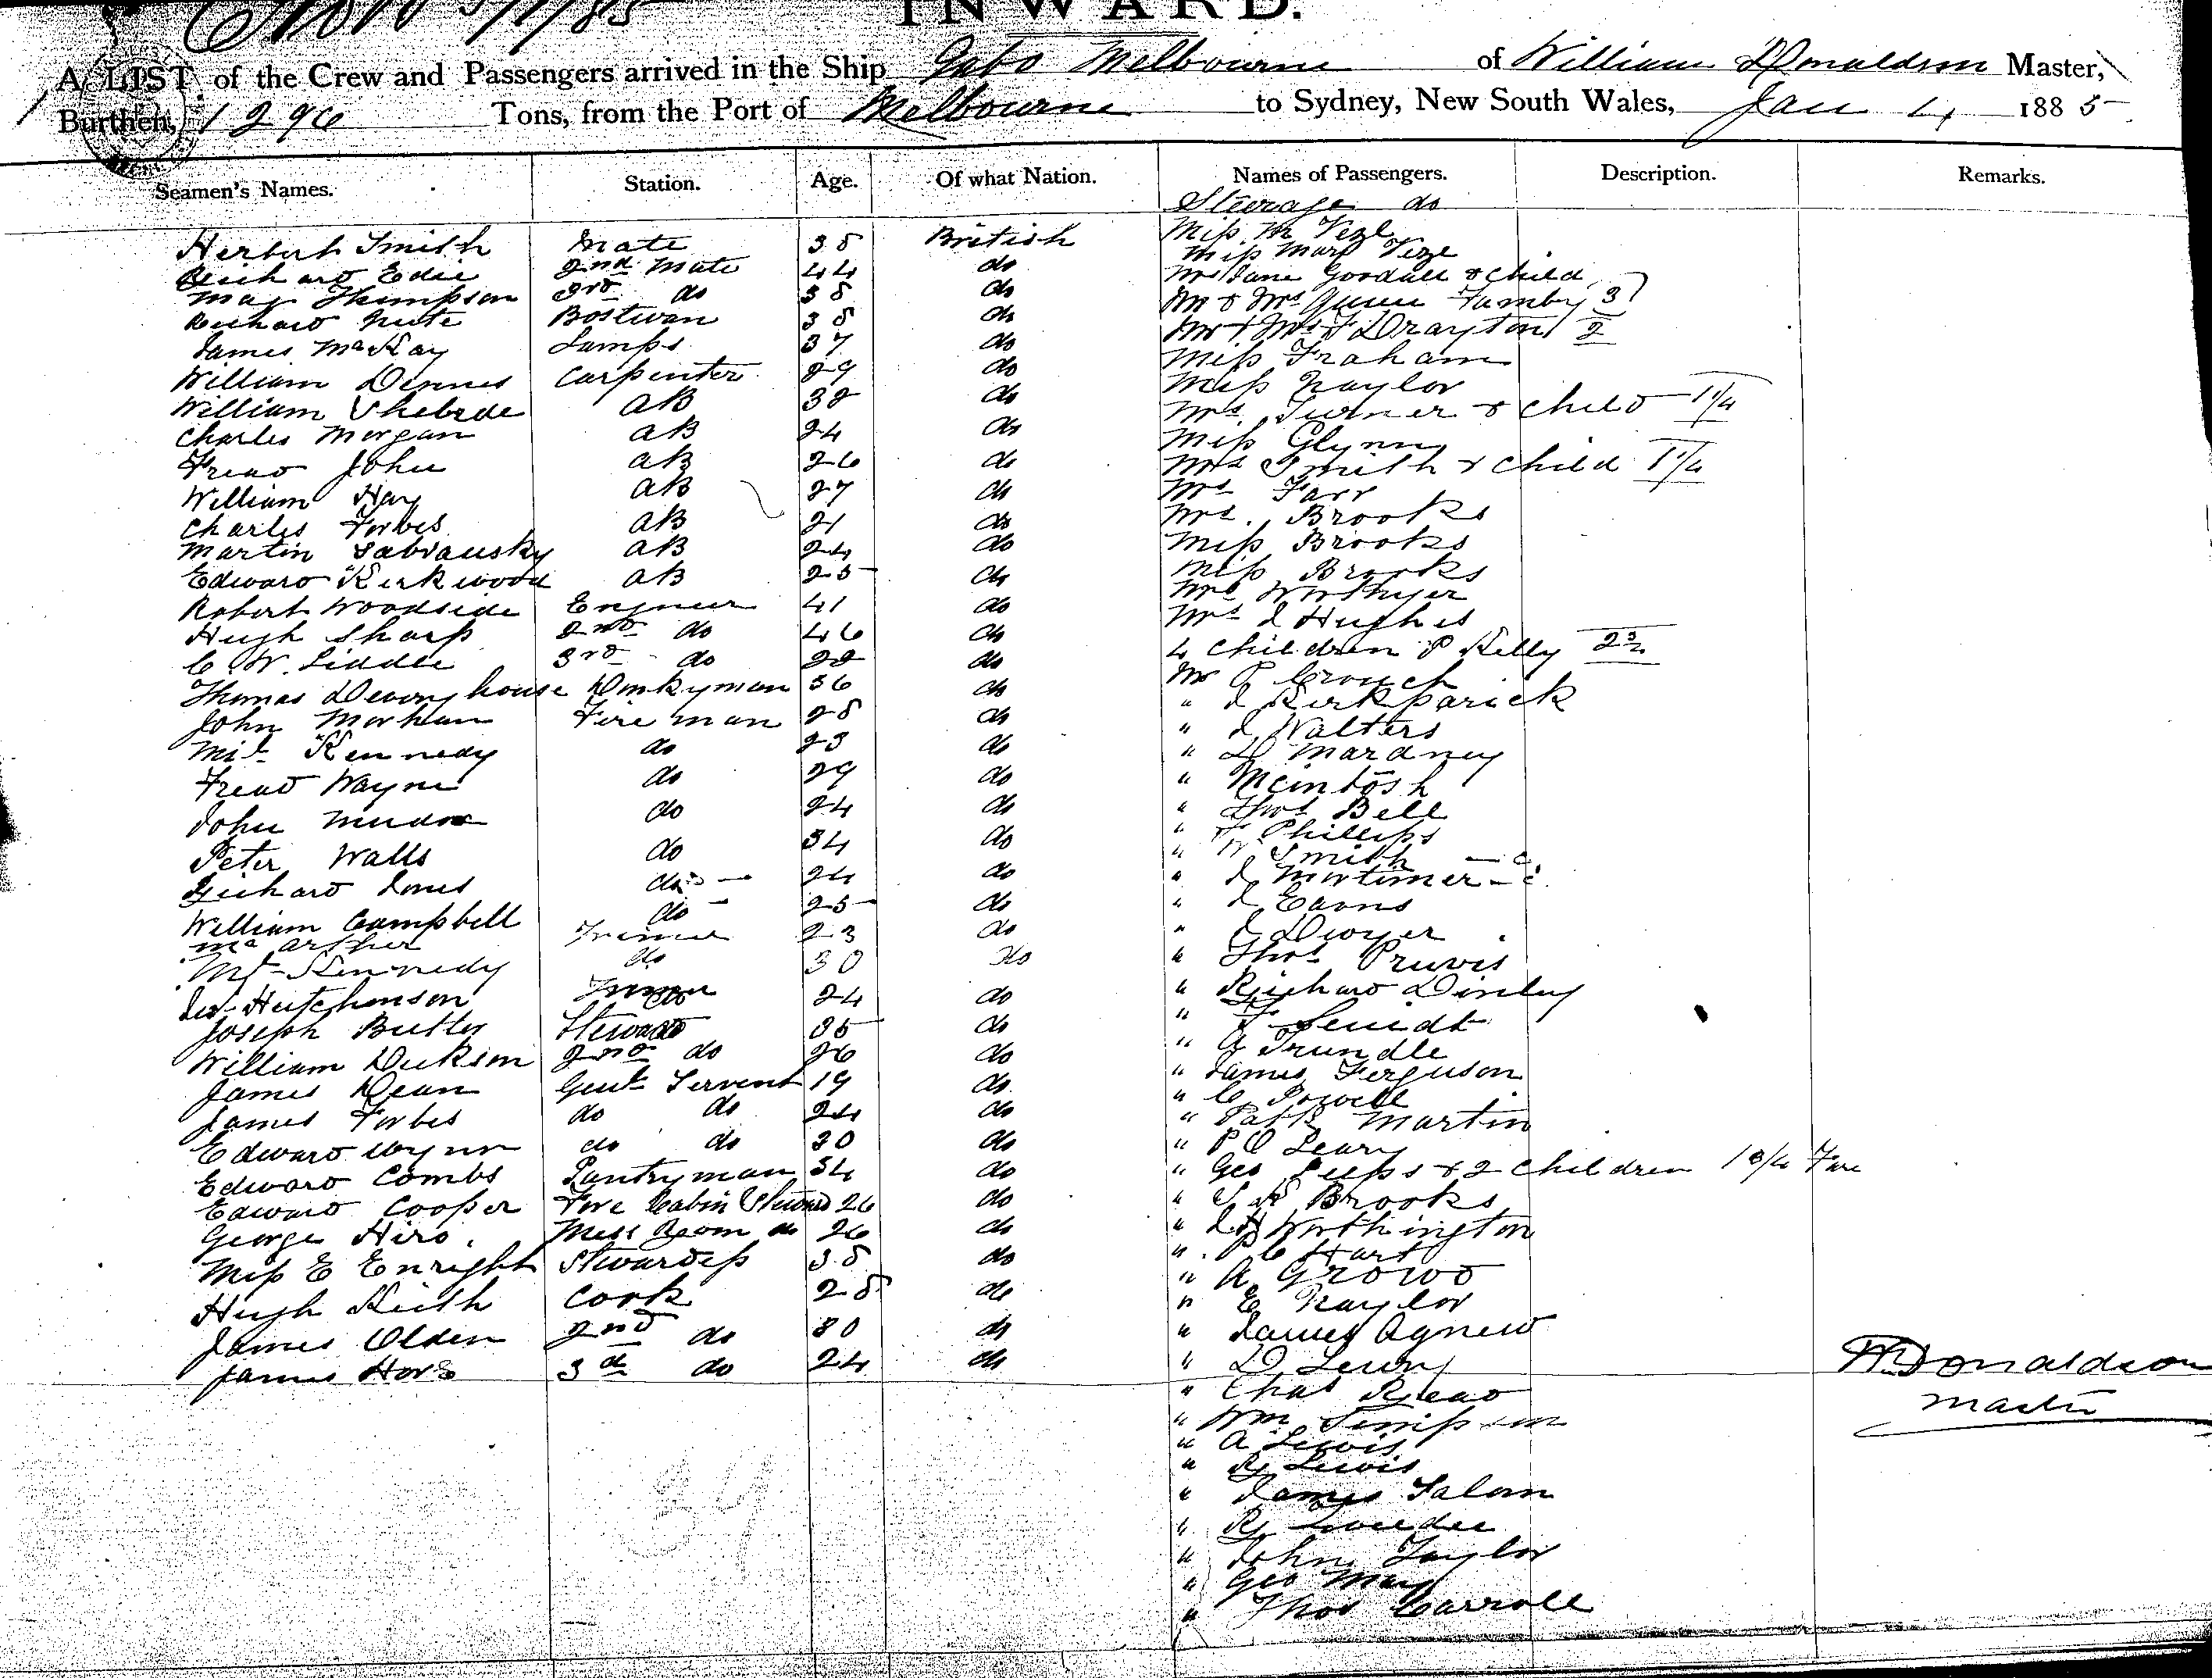 INWARD.
A LIST of the Crew and Passengers arrived in the Ship Gabo Melbourne of William Donaldson Master,
Burthen, 1296 Tons, from the Port of Melbourne to Sydney, New South Wales, Jan 4, 1885
Seamen's Names. Station. Age. Of what Nation. Names of Passengers. Description. Remarks.
Steerage do
Herbert Smith Mate 38 British
Richard Edie 2nd Mate 44 do
May Thompson 3rd do 38 do
Richard 38 do
James McKay Lamps 37 do
William Dennes Carpenter 29 do
William AB 32 do
Charles Morgan AB 24 do
Fread John AB 26 do
William Hay AB 27 do
Charles Forbes AB 21 do
Martin AB 24 do
Edward Kirkwood AB 25 do
Robert Woodside Engineer 41 do
Hugh Sharp 2nd do 46 do
C. W. Liddle 3rd do 22 do
Thomas Devonyhouse Donkyman 36 do
John Fire man 28 do
Kennedy do 23 do
Fread Wayne do 29 do
John do 24 do
Peter Walls do 34 do
Richard Jones do 24 do
William Campbell do 25 do
McArther Trimer 23 do
Mt Kennedy do 30 do
Hutchinson 24 do
Joseph Butler Steward 35 do
William Dickson 2nd do 26 do
James Dean Genl Servent 19 do
James Forbes do do 24 do
Edward Wynn do do 30 do
Edward Combs Pantryman 34 do
Edward Cooper Fore Cabin Steward 26 do
George Hiro Mess Room do 26 do
Miss E Enright Stewardess 38 do
Hugh Keith Cook 28 do
James Olden 2nd do 30 do
James 3d do 24 do
Miss M Veze
Miss Mary Veze
Mrs Jane Goodall & child
Mr & Mrs Famby 3
Mr & Mrs F Drayton 2
Miss Fraham
Miss Naylor
Mrs Turner & child 1 1/4
Miss Glynn
Mrs Smith & child 1 1/4
Mrs Farr
Mrs. Brooks
Miss Brooks
Miss Brooks
Mrs
Mrs J Hughes
4 children P Kelly
Mr P Crouch
" J Kirkparick
" J Walters
" D Mardney
" Mcintosh
" Thos Bell
" F Phillips
" W Smith
" J Mortimer
" J Earns
" J Dwyer
" Thos Pruvis
" Richard Dinley
" F
" A Trundle
" James Ferguson
" C Powell
" Patk Martin
" P O Leary
" Geo Leeps & 2 children 1 3/4 Fare
" Brooks
" J H Worthington
" P C Hart
" A Growd
" E Naylor
" James Agnew
" D Leary
" Chas Read
" Wm Simpson
" A Lewis
" R Lewis
" James Salom
" R
" John Taylor
" Geo May
" Thos Carroll
W Donaldson
Master